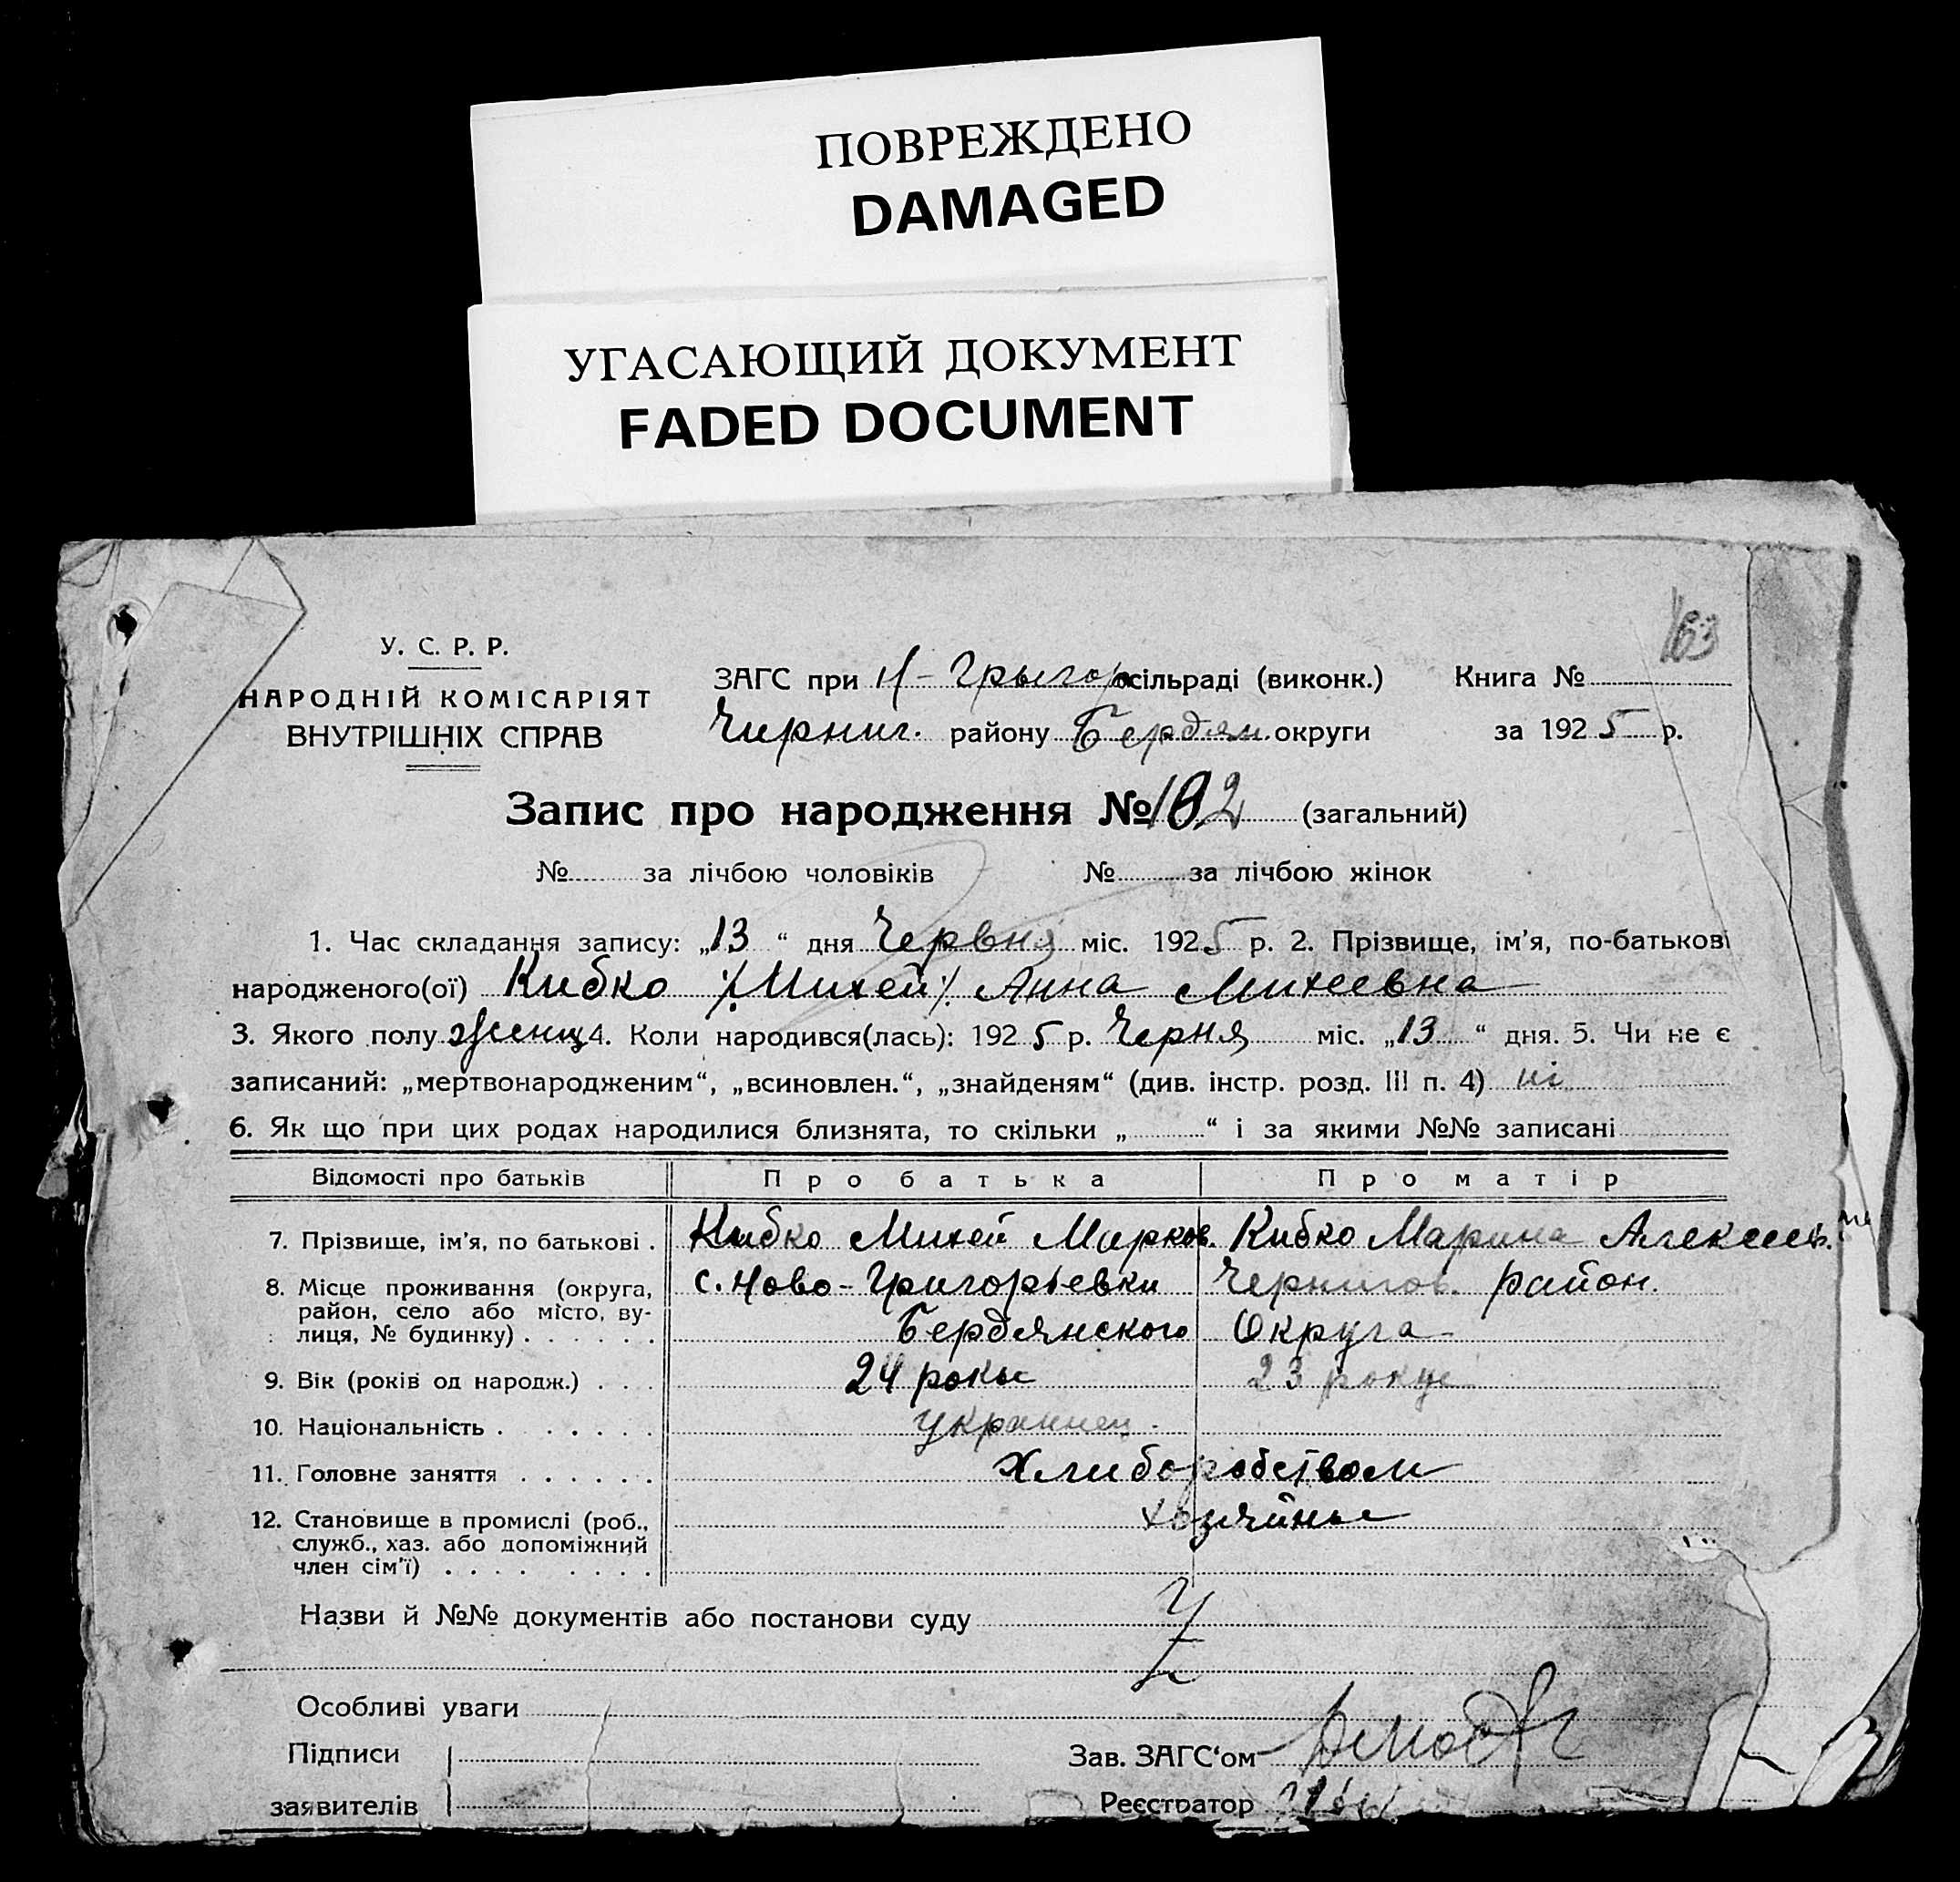 ПОВРЕЖДЕНО
DAMAGED
УГАСАЮЩИЙ ДОКУМЕНТ
FADED DOCUMENT
163
У. С. Р. Р.
НАРОДНІЙ КОМІСАРІЯТ
ВНУТРІШНІХ СПРАВ
ЗАГС при Н-Грыгор сільраді (виконк.) Книга №
Черниг. району Бердян. округи за 1925 р.
Запис про народження № 102 (загальний)
№ за лічбою чоловіків № за лічбою жінок
1. Час складання запису: „13“ дня Червня міс. 1925 р. 2. Прізвище, ім’я, по-батькові
народженого(ої) Кибко /Михей/ Анна Михеевна
3. Якого полу женщ 4. Коли народився(лась): 1925 р. Черня міс. „13“ дня. 5. Чи не є
записаний: „мертвонародженим“, „всиновлен.“, „знайденям“ (див. інстр. розд. III п. 4) ні
6. Як що при цих родах народилися близнята, то скільки „ “ і за якими №№ записані
Відомості про батьків Про батька Про матір
7. Прізвище, ім’я, по батькові . Кибко Михей Марков. Кибко Марина Алексеев.
8. Місце проживання (округа, с. Ново-Григорьевки Чернигов. район.
район, село або місто, ву-
лиця, № будинку) . . . . . . Бердянского Округа
9. Вік (років од народж.) . . . 24 рокы 23 року
10. Національність . . . . . . украинец.
11. Головне заняття . . . . . . Хлиборобством
12. Становище в промислі (роб., хозяйны
служб., хаз. або допоміжний
член сім’ї) . . . . . . . .
Назви й №№ документів або постанови суду
Особливі уваги
Підписи Зав. ЗАГС‘ом
заявителів Реєстратор